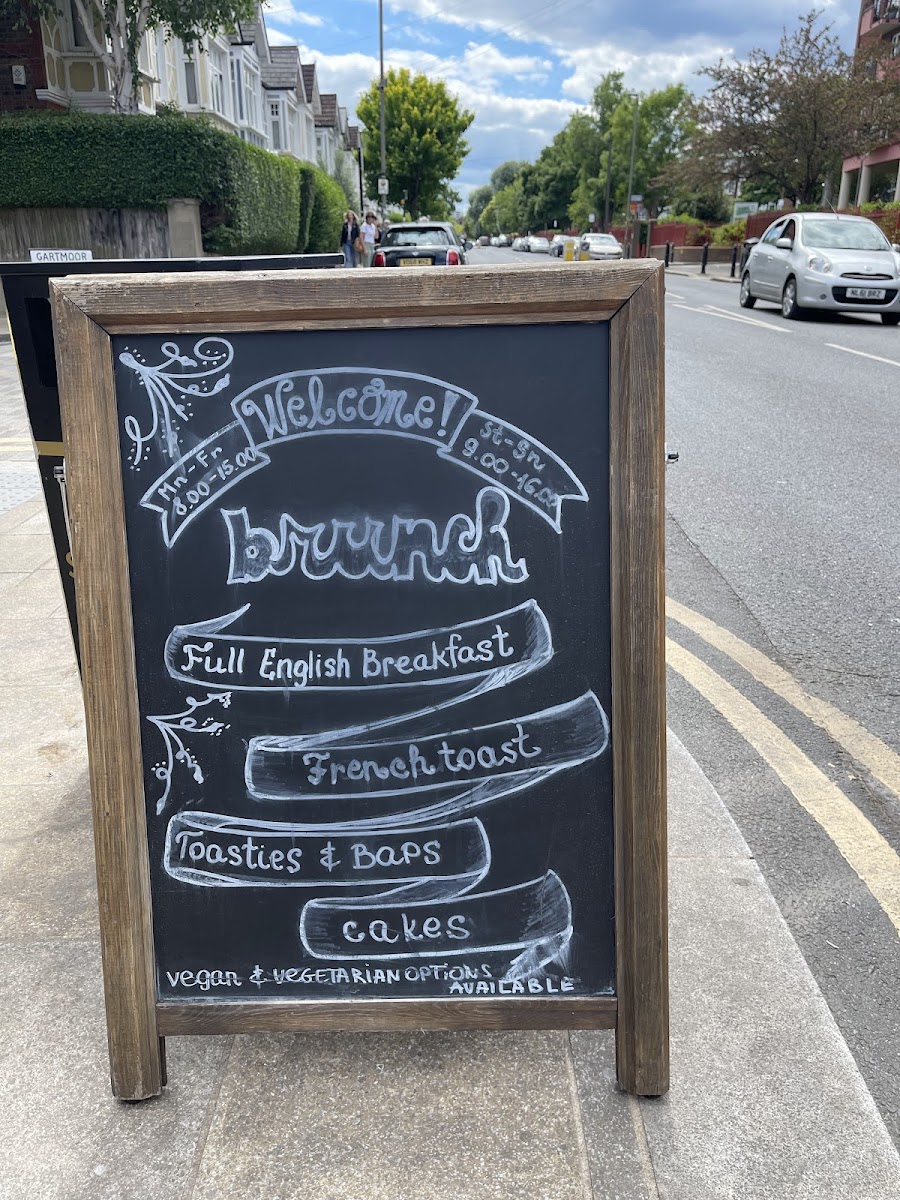 GARTMOOR
NL61 BRZ
Welcome!
Mn-Fr
8.00-15.00
St-Sn
9.00-16.00
brunch
Full English Breakfast
French toast
Toasties & Baps
cakes
vegan & vegetarian options
available